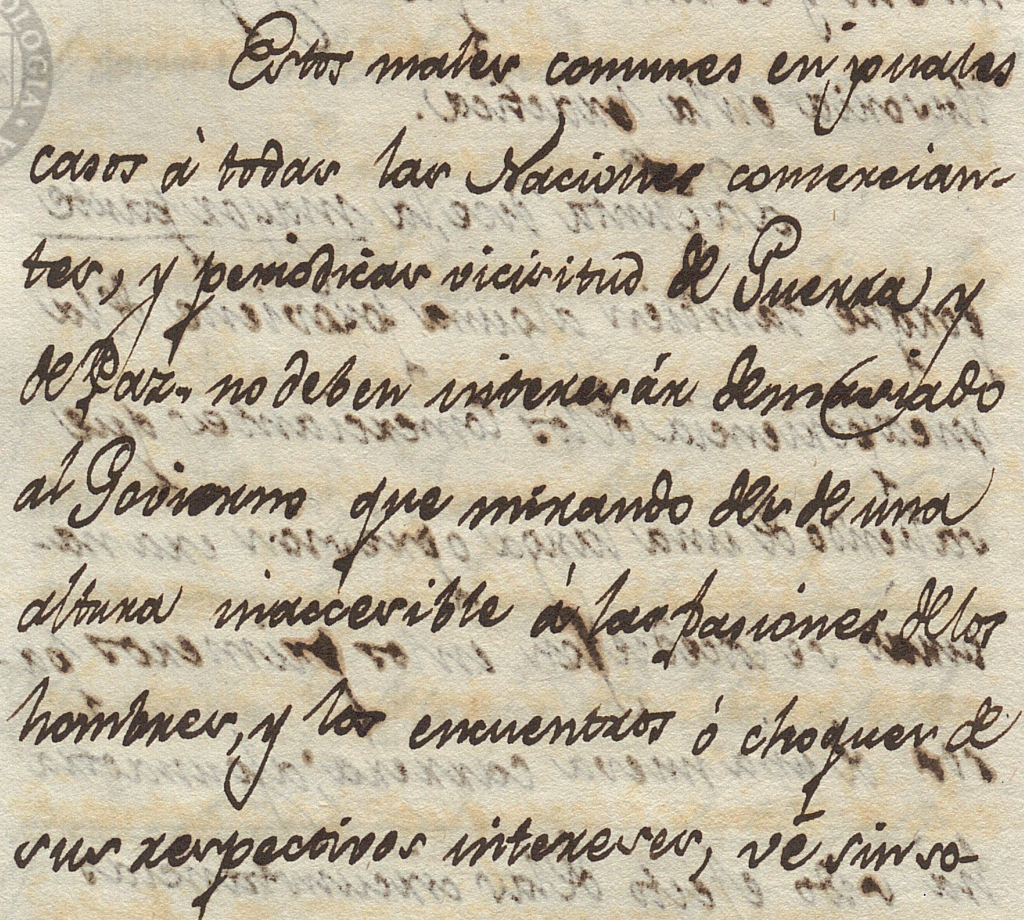 Estos males comunes en yguales
casos à todas las Naciones comercian-
tes, y periodicas vicisitud de Guerra y
de Paz, no deben interesár demasiado
al Govierno que mirando desde una
altura inaccesible á las pasiones de los
hombres, y los encuentros ó choques de
sus respectivos intereses, vé sin so-
LOGIA